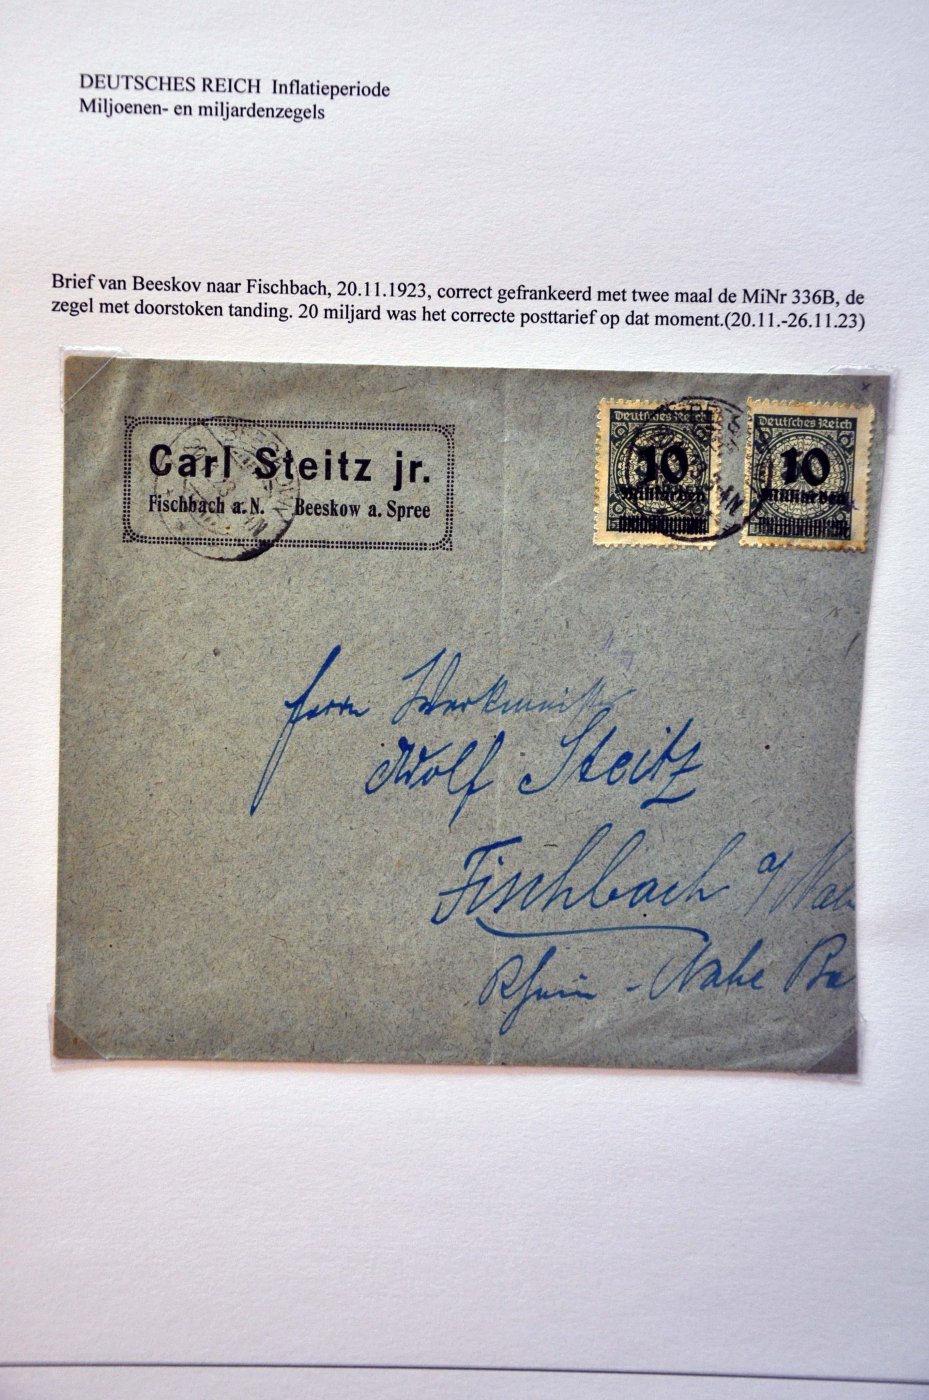 DEUTSCHES REICH Inflatieperiode
Miljoenen- en miljardenzegels
Brief van Beeskov naar Fischbach, 20.11.1923, correct gefrankeerd met twee maal de MiNr 336B, de
zegel met doorstoken tanding. 20 miljard was het correcte posttarief op dat moment.(20.11.-26.11.23)
Carl Steitz jr.
Fischbach a. N. Beeskow a. Spree
Deutsches Reich
10
Milliarden
Deutsches Reich
10
Milliarden
Herrn Werkmeister
Adolf Steitz
Fischbach a/ Nahe
Rhein - Nahe Ba